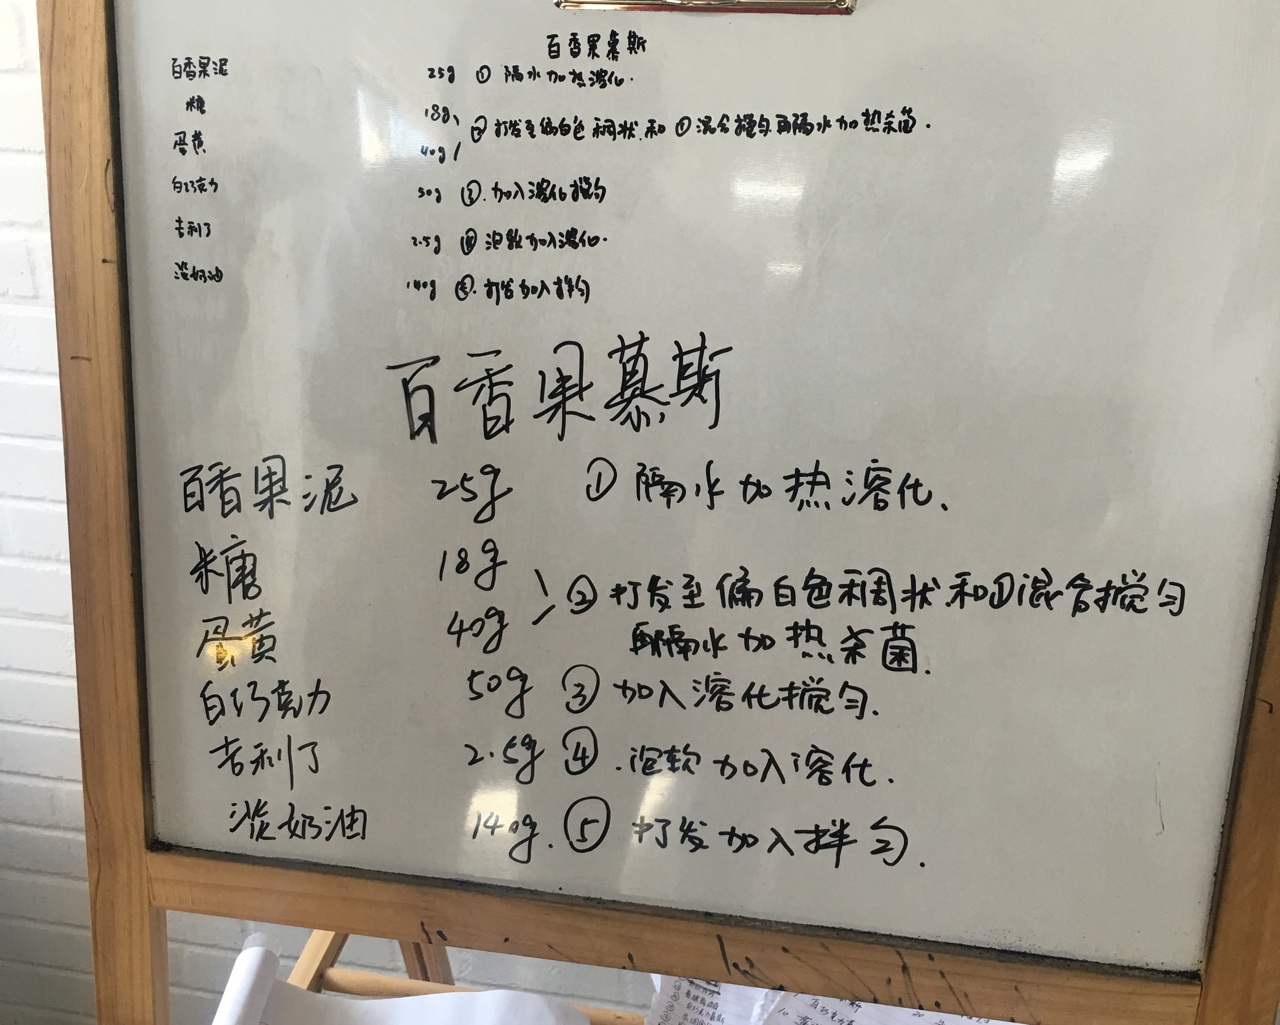 百香果慕斯
百香果泥 25g ① 隔水加热溶化.
糖 18g
② 打发至偏白色稠状.和①混合搅匀再隔水加热杀菌.
蛋黄 40g
白巧克力 50g ③.加入溶化搅匀
吉利丁 2.5g ④ 泡软加入溶化.
淡奶油 140g ⑤.打发加入拌匀
百香果慕斯
百香果泥 25g ① 隔水加热溶化、
糖 18g
② 打发至偏白色稠状和①混合搅匀
蛋黄 40g
再隔水加热杀菌.
白巧克力 50g ③ 加入溶化搅匀.
吉利丁 2.5g ④.泡软加入溶化.
淡奶油 140g. ⑤ 打发加入拌匀.